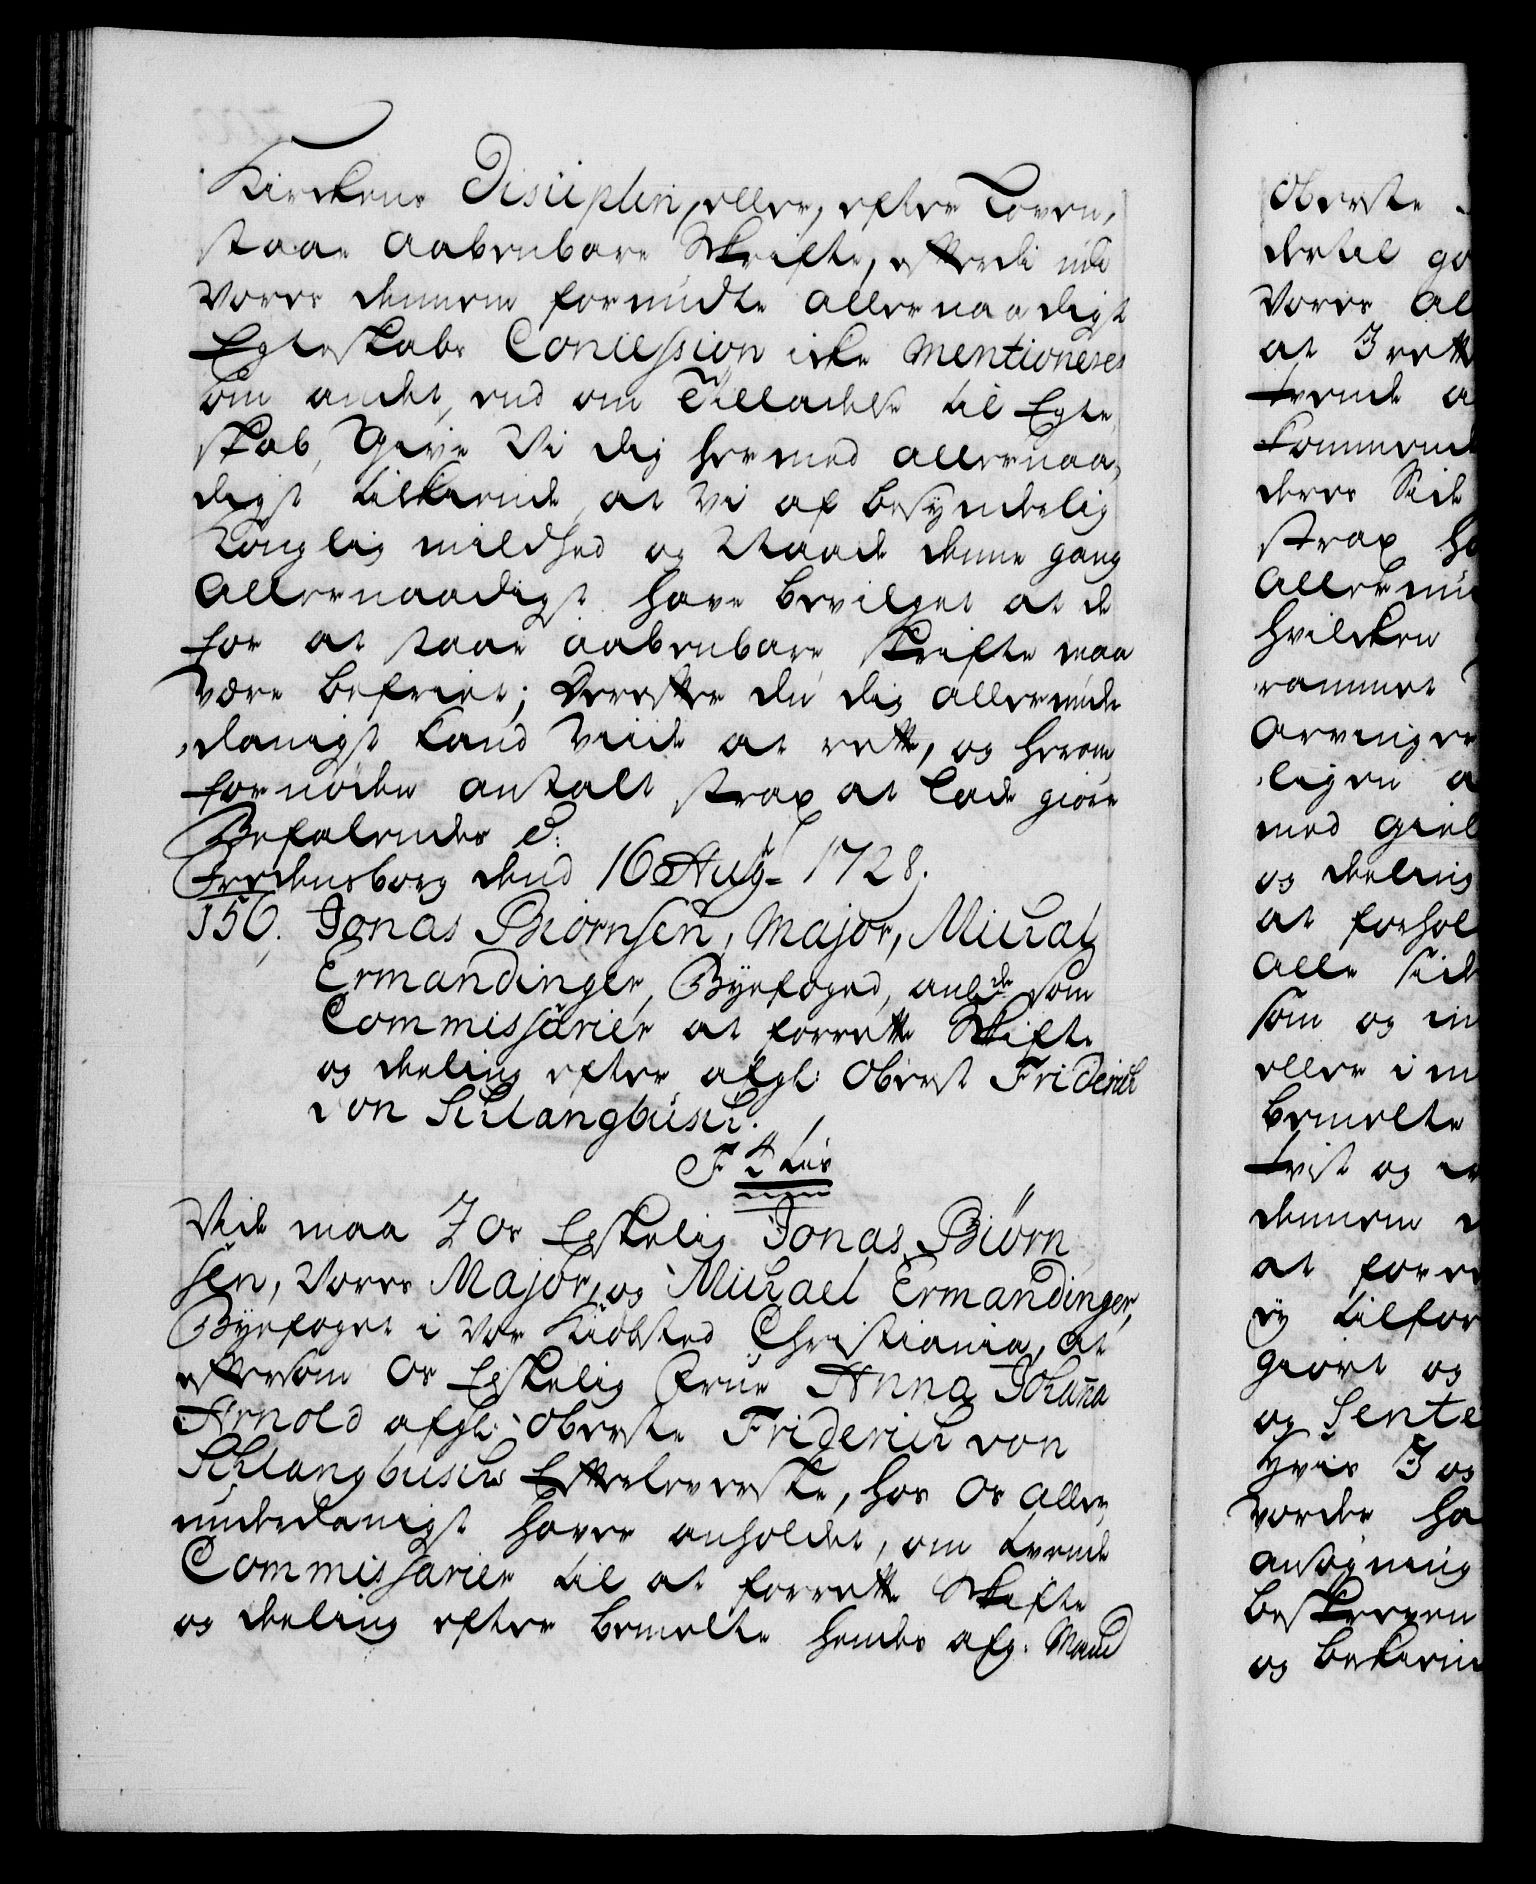 Kirckens Disciplin, eller, efter Loven,
staae aabenbare Skrifte, efterdi udi
Vores dennem forundte allernaadigst
Egteskabs Concession icke mentioneres
om andet, end om Tilladelse til Egte,
skab, Give Vi dig hermed allernaa,
digst tilkiende, at Vi af besynderlig
Kongelig mildhed og Naade denne gang
allernaadigst have bevilget at de
for at staae aabenbare skrifte maa
være befriet; Derefter du dig allerunder
danigst kand viide at rette, og herom
fornøden anstalt strax at lade giøre
Befalendes &:
Fredensborg dend 16 Aug: 1728.
156. Jonas Biørnsen, Major, Michal
Ermandinger, Byefoged, anl.de som
Commissarier at forrette Skifte
og deeling efter afgl: Obrist Friderich
von Schlangbusch.
F 4tus
Viide maa I Os Elskelig Jonas Biørn
sen, Vores Major, og Michael Ermandinger,
Byefoget i Vor Kiøbsted Christiania, at
eftersom Os Elskelig Frue Anna Johana
Arnold afgl: Oberste Friderich von
Schlangbusch Efterleverske, hos Os aller,
underdanigst haver anholdet, om tvende
Commissarier til at forrette Skifte
og deeling efter bemelte hendes afg: Mand
Oberste
dertil go
Vores al
at I rette
tvende a
kommend
deres Side
strax ha
allermu
hvilcken
rammet
arvinger
ligen a
med giel
og deeling
at forhol
alle side
som og in
eller i m
bemelte
tvist og
dennem
at forre
ey tilfor
giort og
og Sente
Hvis I og
vorder ha
ansøgning
beskreven
og bekien